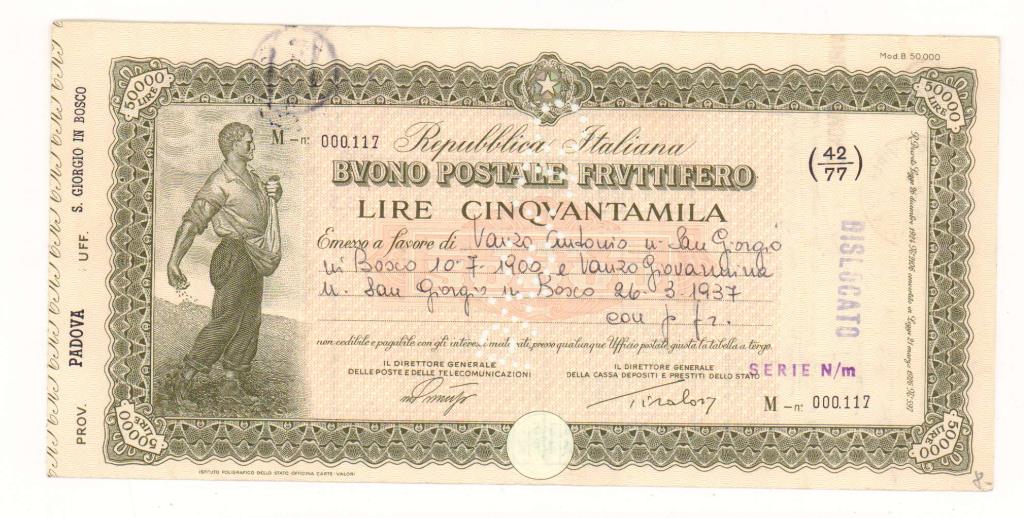 Mod. B. 50.000
50000 LIRE
50000 LIRE
M - n: 000.117
Repubblica Italiana
BVONO POSTALE FRVTTIFERO
LIRE CINQVANTAMILA
(42/77)
Emesso a favore di Vanzo Antonio n. San Giorgio
in Bosco 10-7-1900 e Vanzo Giovannina
n. San Giorgio in Bosco 26-3-1937
con p fr.
non cedibile e pagabile con gli interessi maturati, presso qualunque Ufficio postale, giusta la tabella a tergo.
IL DIRETTORE GENERALE
DELLE POSTE E DELLE TELECOMUNICAZIONI
IL DIRETTORE GENERALE
DELLA CASSA DEPOSITI E PRESTITI DELLO STATO
SERIE N/m
M - n: 000.117
50000 LIRE
50000 LIRE
ISTITUTO POLIGRAFICO DELLO STATO OFFICINA CARTE-VALORI
PROV. PADOVA UFF. S. GIORGIO IN BOSCO
DISLOCATO
R. Decreto Legge 26 dicembre 1924 N. 2106 convertito in Legge 21 marzo 1926 N. 597
8-